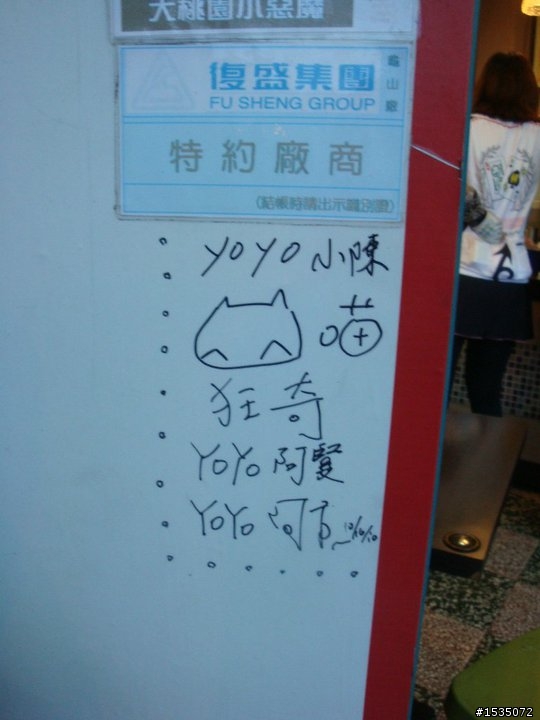 大桃園小惡魔
復盛集團
龜山廠
FU SHENG GROUP
特約廠商
(結帳時請出示識別證)
YOYO 小陳
喵
狂奇
YOYO 阿賢
YOYO 阿布
#1535072